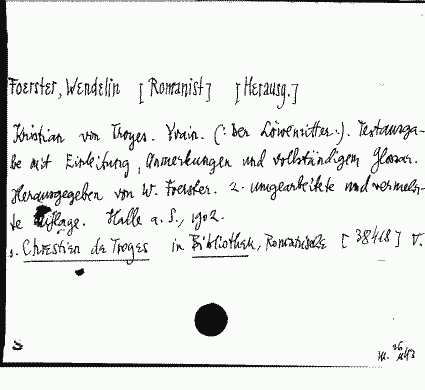 Foerster, Wendelin [Romanist] [Herausg.]
Kristian von Troyes. Yvain. (: Der Löwenritter.). Textausga-
be mit Einleitung, Anmerkungen und vollständigem Glossar.
Herausgegeben von W. Foerster. 2. umgearbeitete und vermehr-
te Auflage. Halle a. S., 1902.
s. Chrestien de Troyes in Bibliothek, Romanische [38418] V.